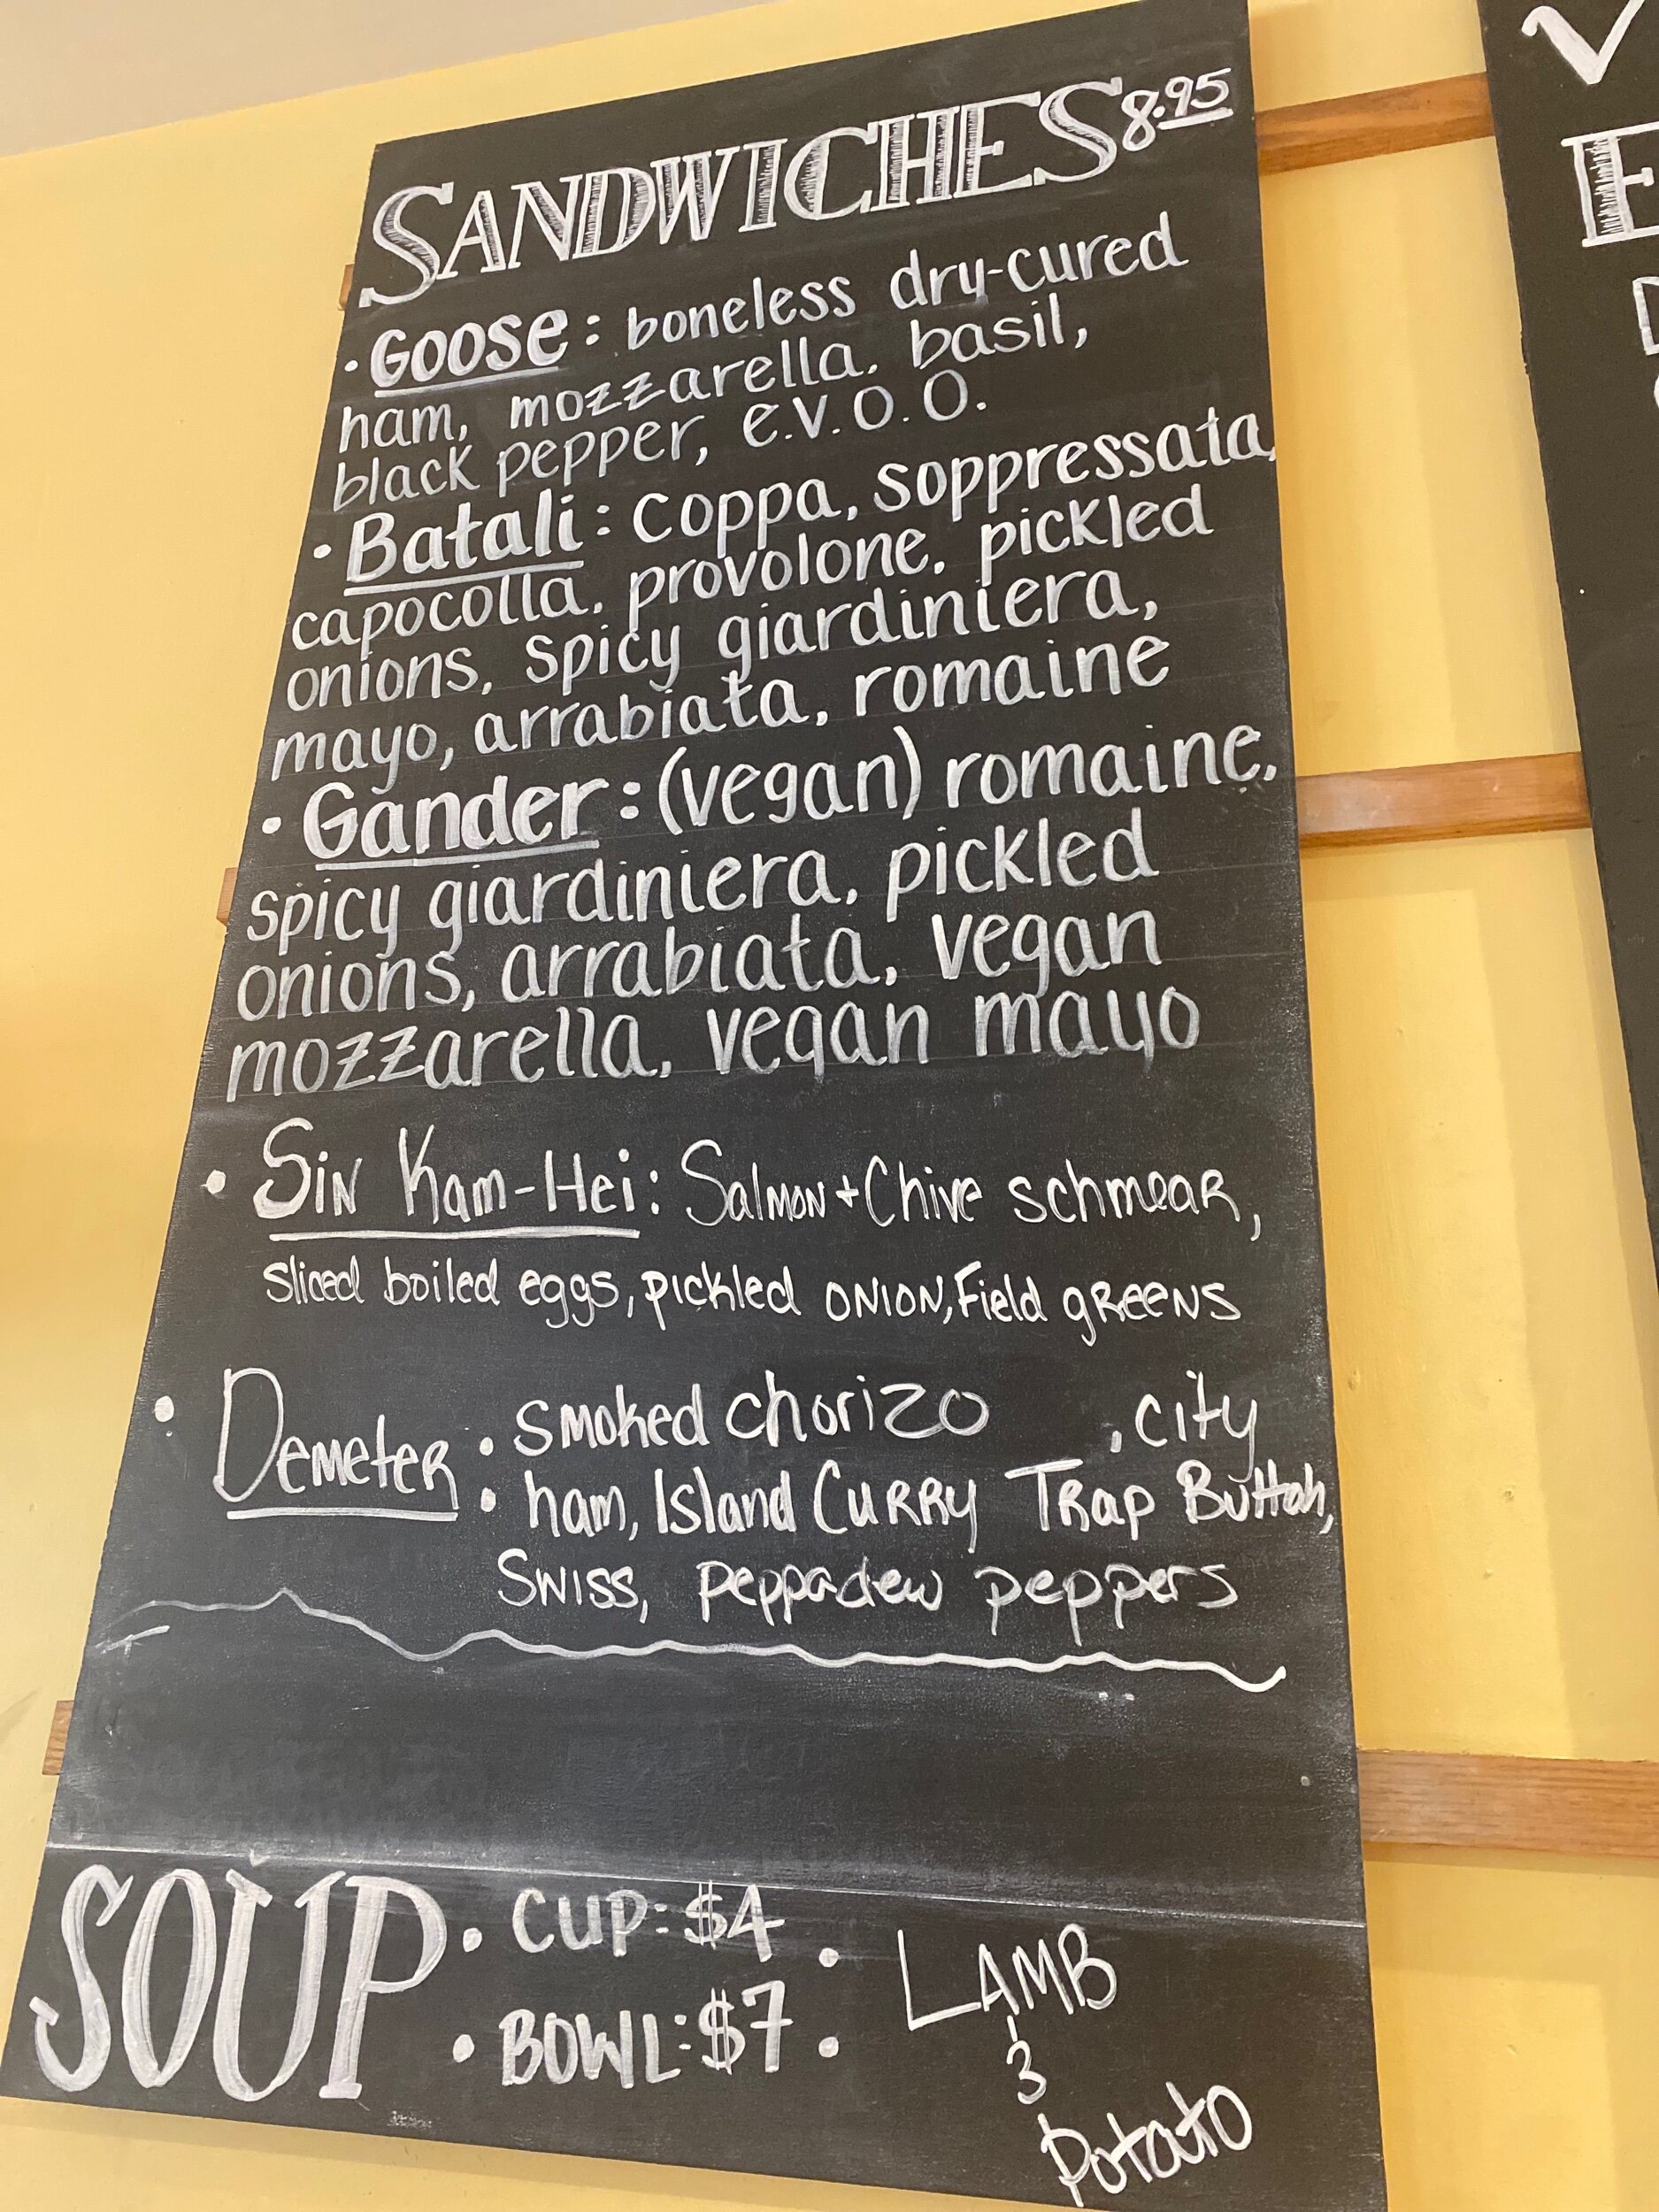 SANDWICHES 8.95
• GOOSE: boneless dry-cured
ham, mozzarella, basil,
black pepper, e.v.o.o.
• Batali: coppa, soppressata,
capocolla, provolone, pickled
onions, spicy giardiniera,
mayo, arrabiata, romaine
• Gander: (vegan) romaine,
spicy giardiniera, pickled
onions, arrabiata, vegan
mozzarella, vegan mayo
• Sin Kam-Hei: Salmon + Chive schmear,
sliced boiled eggs, pickled onion, Field greens
• Demeter: smoked chorizo , city
ham, Island Curry Trap Buttah,
Swiss, peppadew peppers
SOUP • CUP: $4 •
• BOWL: $7 •
LAMB
&
Potato